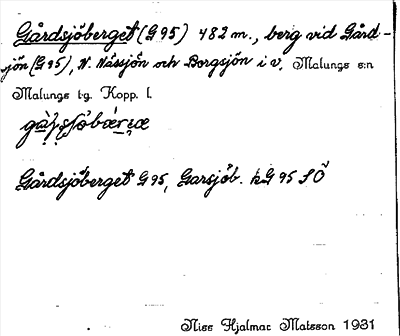 Gårdsjöberget (G 95) 482 m., berg vid Gård-
sjön (G 95), N. Nässjön och Borgsjön i v, Malungs s:n
Malungs t:g. Kopp. l.
Gårdsjöberget G 95, Garsjöb. kG 95 SÖ
Niss Hjalmar Matsson 1931